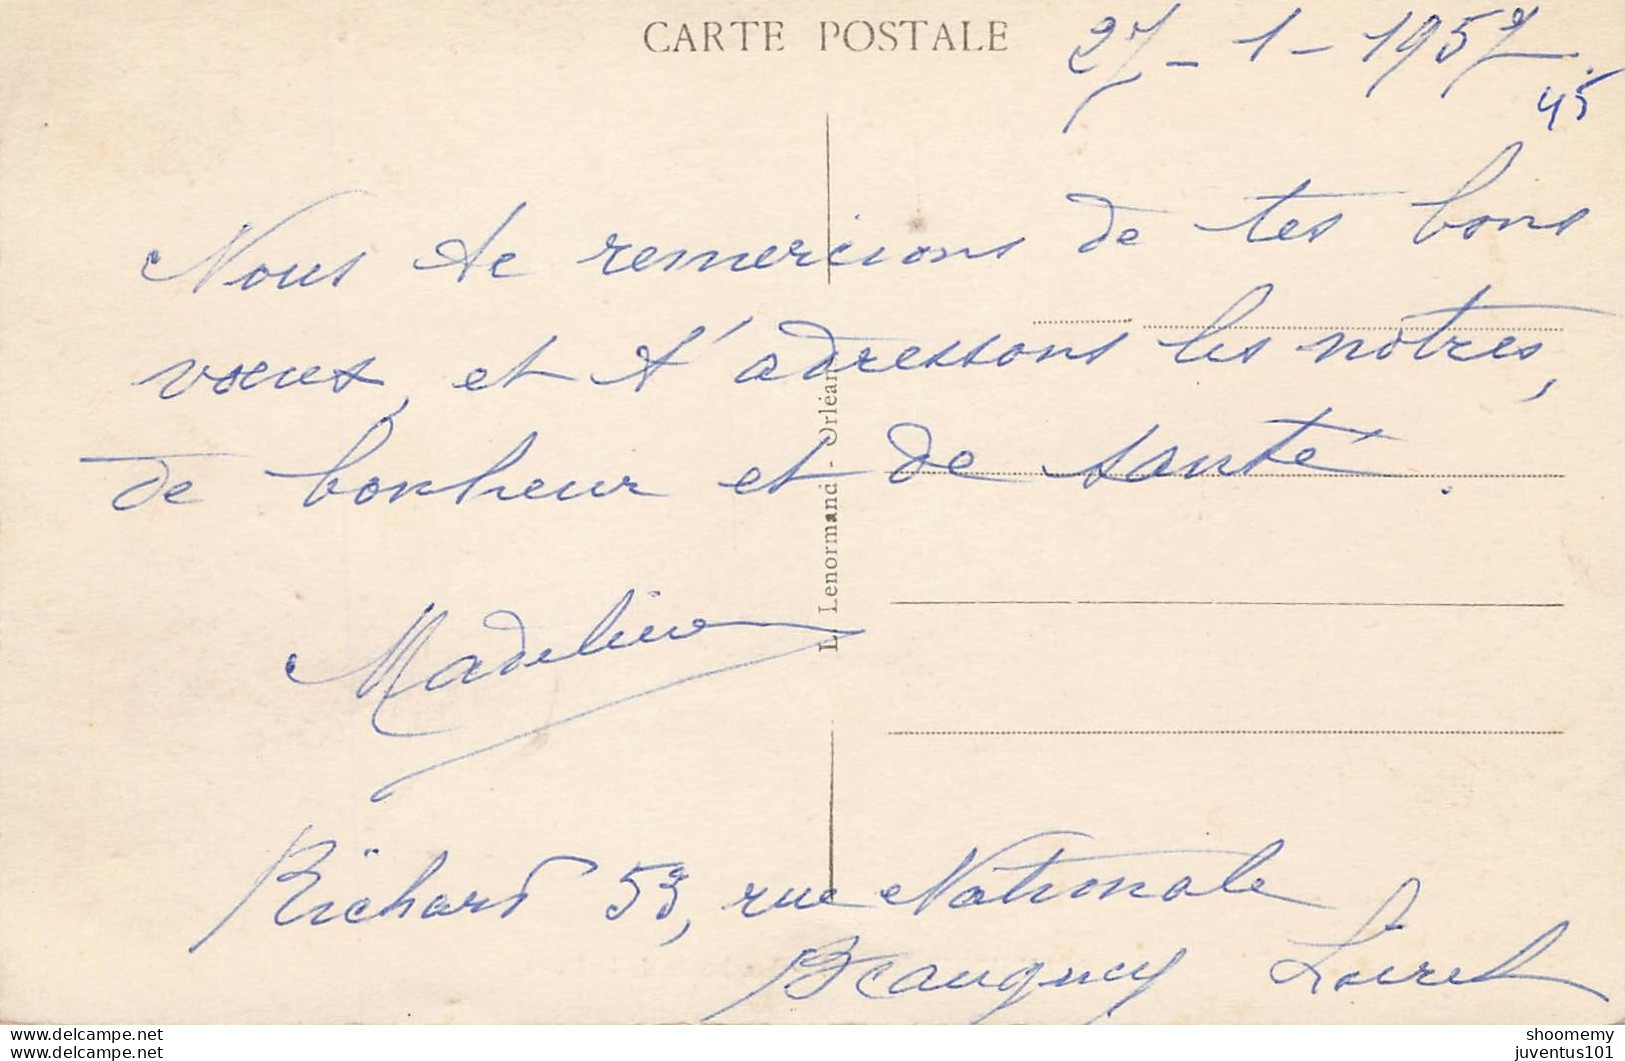 CARTE POSTALE
27-1-1957.
45
Nous te remercions de tes bons
vœux, et t'adressons les nôtres,
de bonheur et de santé.
Madeleine
L. Lenormand - Orléans
Richard 53, rue Nationale
Beaugency Loiret
www.delcampe.net
www.delcampe.net
shoomemy
juventus101